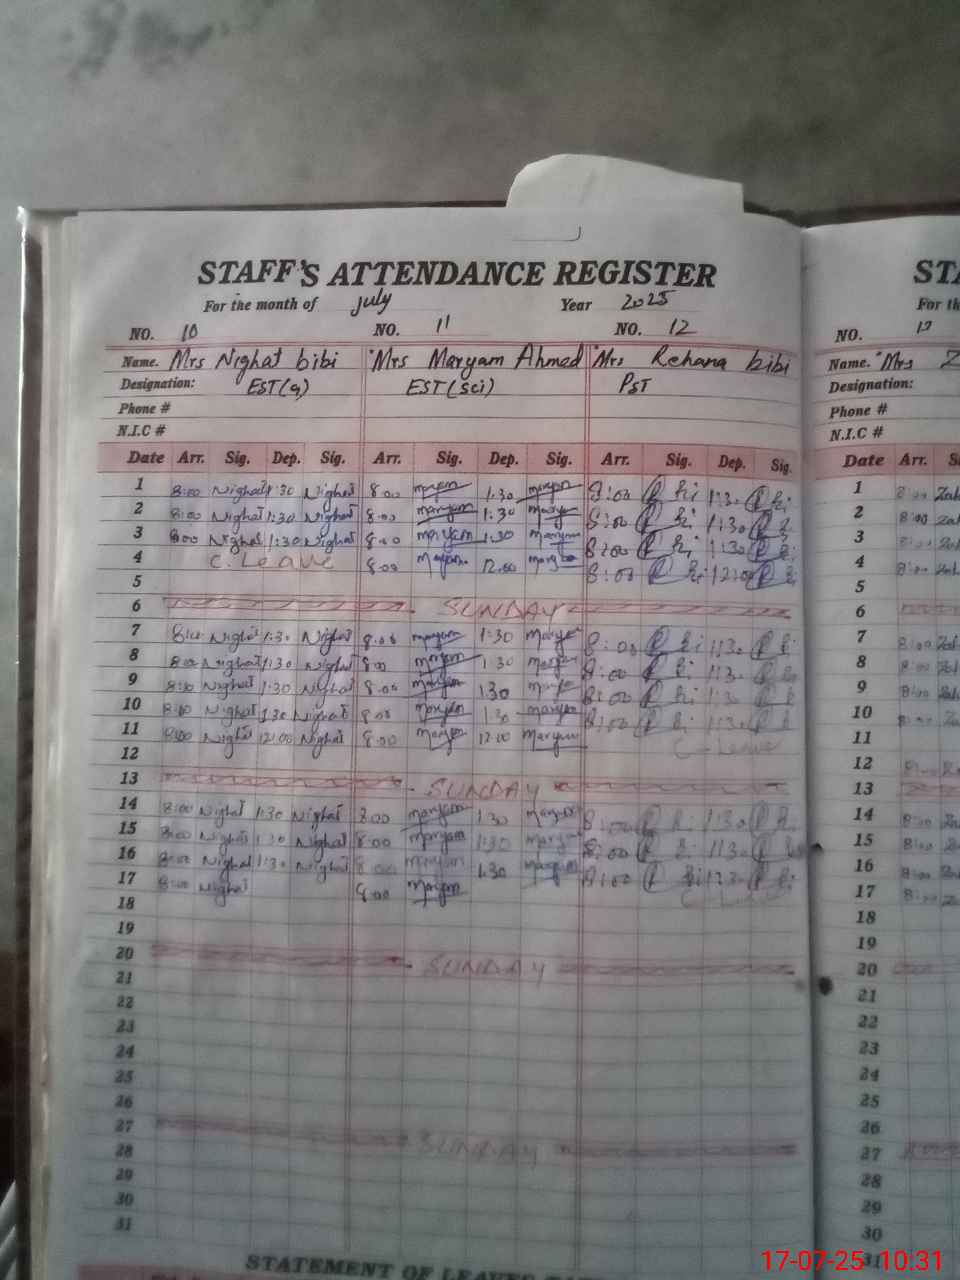 STAFF'S ATTENDANCE REGISTER
For the month of July Year 2025
NO. 10 NO. 11 NO. 12
Name. Mrs Nighat bibi Mrs Maryam Ahmed Mrs Rehana bibi
Designation: EST(g) EST(sci) PST
Phone #
N.I.C #
Date Arr. Sig. Dep. Sig. Arr. Sig. Dep. Sig. Arr. Sig. Dep. Sig.
1 8:00 Nighat 1:30 Nighat 8.00 maryam 1:30 maryam 8:00 1:30
2 8:00 Nighat 1:30 Nighat 8.00 maryam 1:30 8:00 1:30
3 8:00 Nighat 1:30 Nighat 8.00 maryam 1.30 maryam 8:00 1:30
4 C. Leave 8.00 Maryam 12.00 8:00 12:00
5
6 SUNDAY
7 8:00 Nighat 1:30 Nighat 8.00 maryam 1:30 8:00 1:30
8 8:00 Nighat 1:30 Nighat 8.00 maryam 1.30 8:00 1:3
9 8:00 Nighat 1:30 Nighat 8.00 maryam 1.30 8:00 1:3
10 8:00 Nighat 1:30 Nighat 8.00 maryam 1.30 maryam 8:00 1:3
11 8:00 Nighat 12:00 Nighat 8.00 Maryam 12.00 Maryam C-Leave
12
13 SUNDAY
14 8:00 Nighat 1:30 Nighat 8.00 maryam 1.30 maryam 8:00 1:30
15 8:00 Nighat 1:30 Nighat 8.00 maryam 1:30 8:00 1:3
16 8:00 Nighat 1:30 Nighat 8.00 maryam 1.30 maryam 8:00 1:3
17 8:00 Nighat 8.00 Maryam C-Leave
18
19
20 SUNDAY
21
22
23
24
25
26
27 SUNDAY
28
29
30
31
STATEMENT OF LEAVES
NO.
Name. Mrs
Designation:
Phone #
N.I.C #
Date Arr.
1 8:00
2 8:00
3 8:00
4 8:00
5
6
7 8:00
8 8:00
9 8:00
10
11
12
13
14 8:00
15 8:00
16 8:00
17 8:00
18
19
20
21
22
23
24
25
26
27
28
29
30
31
17-07-25 10:31